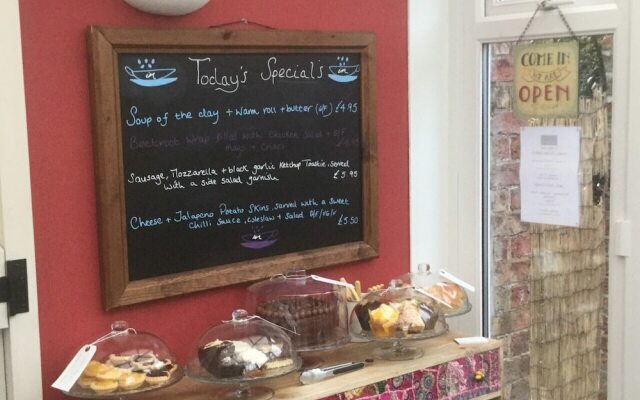 Today's Special's
Soup of the day + warm roll + butter (G/F) £4.95
Beetroot Wrap filled with chicken salad + G/F
Sausage, Mozzarella + black garlic Ketchup Toastie, Served
with a side salad garnish £5.95
Cheese + Jalapeno Potato Skins, served with a sweet
chilli Sauce, Coleslaw + Salad G/F/VG/V £5.50
COME IN
We are
OPEN